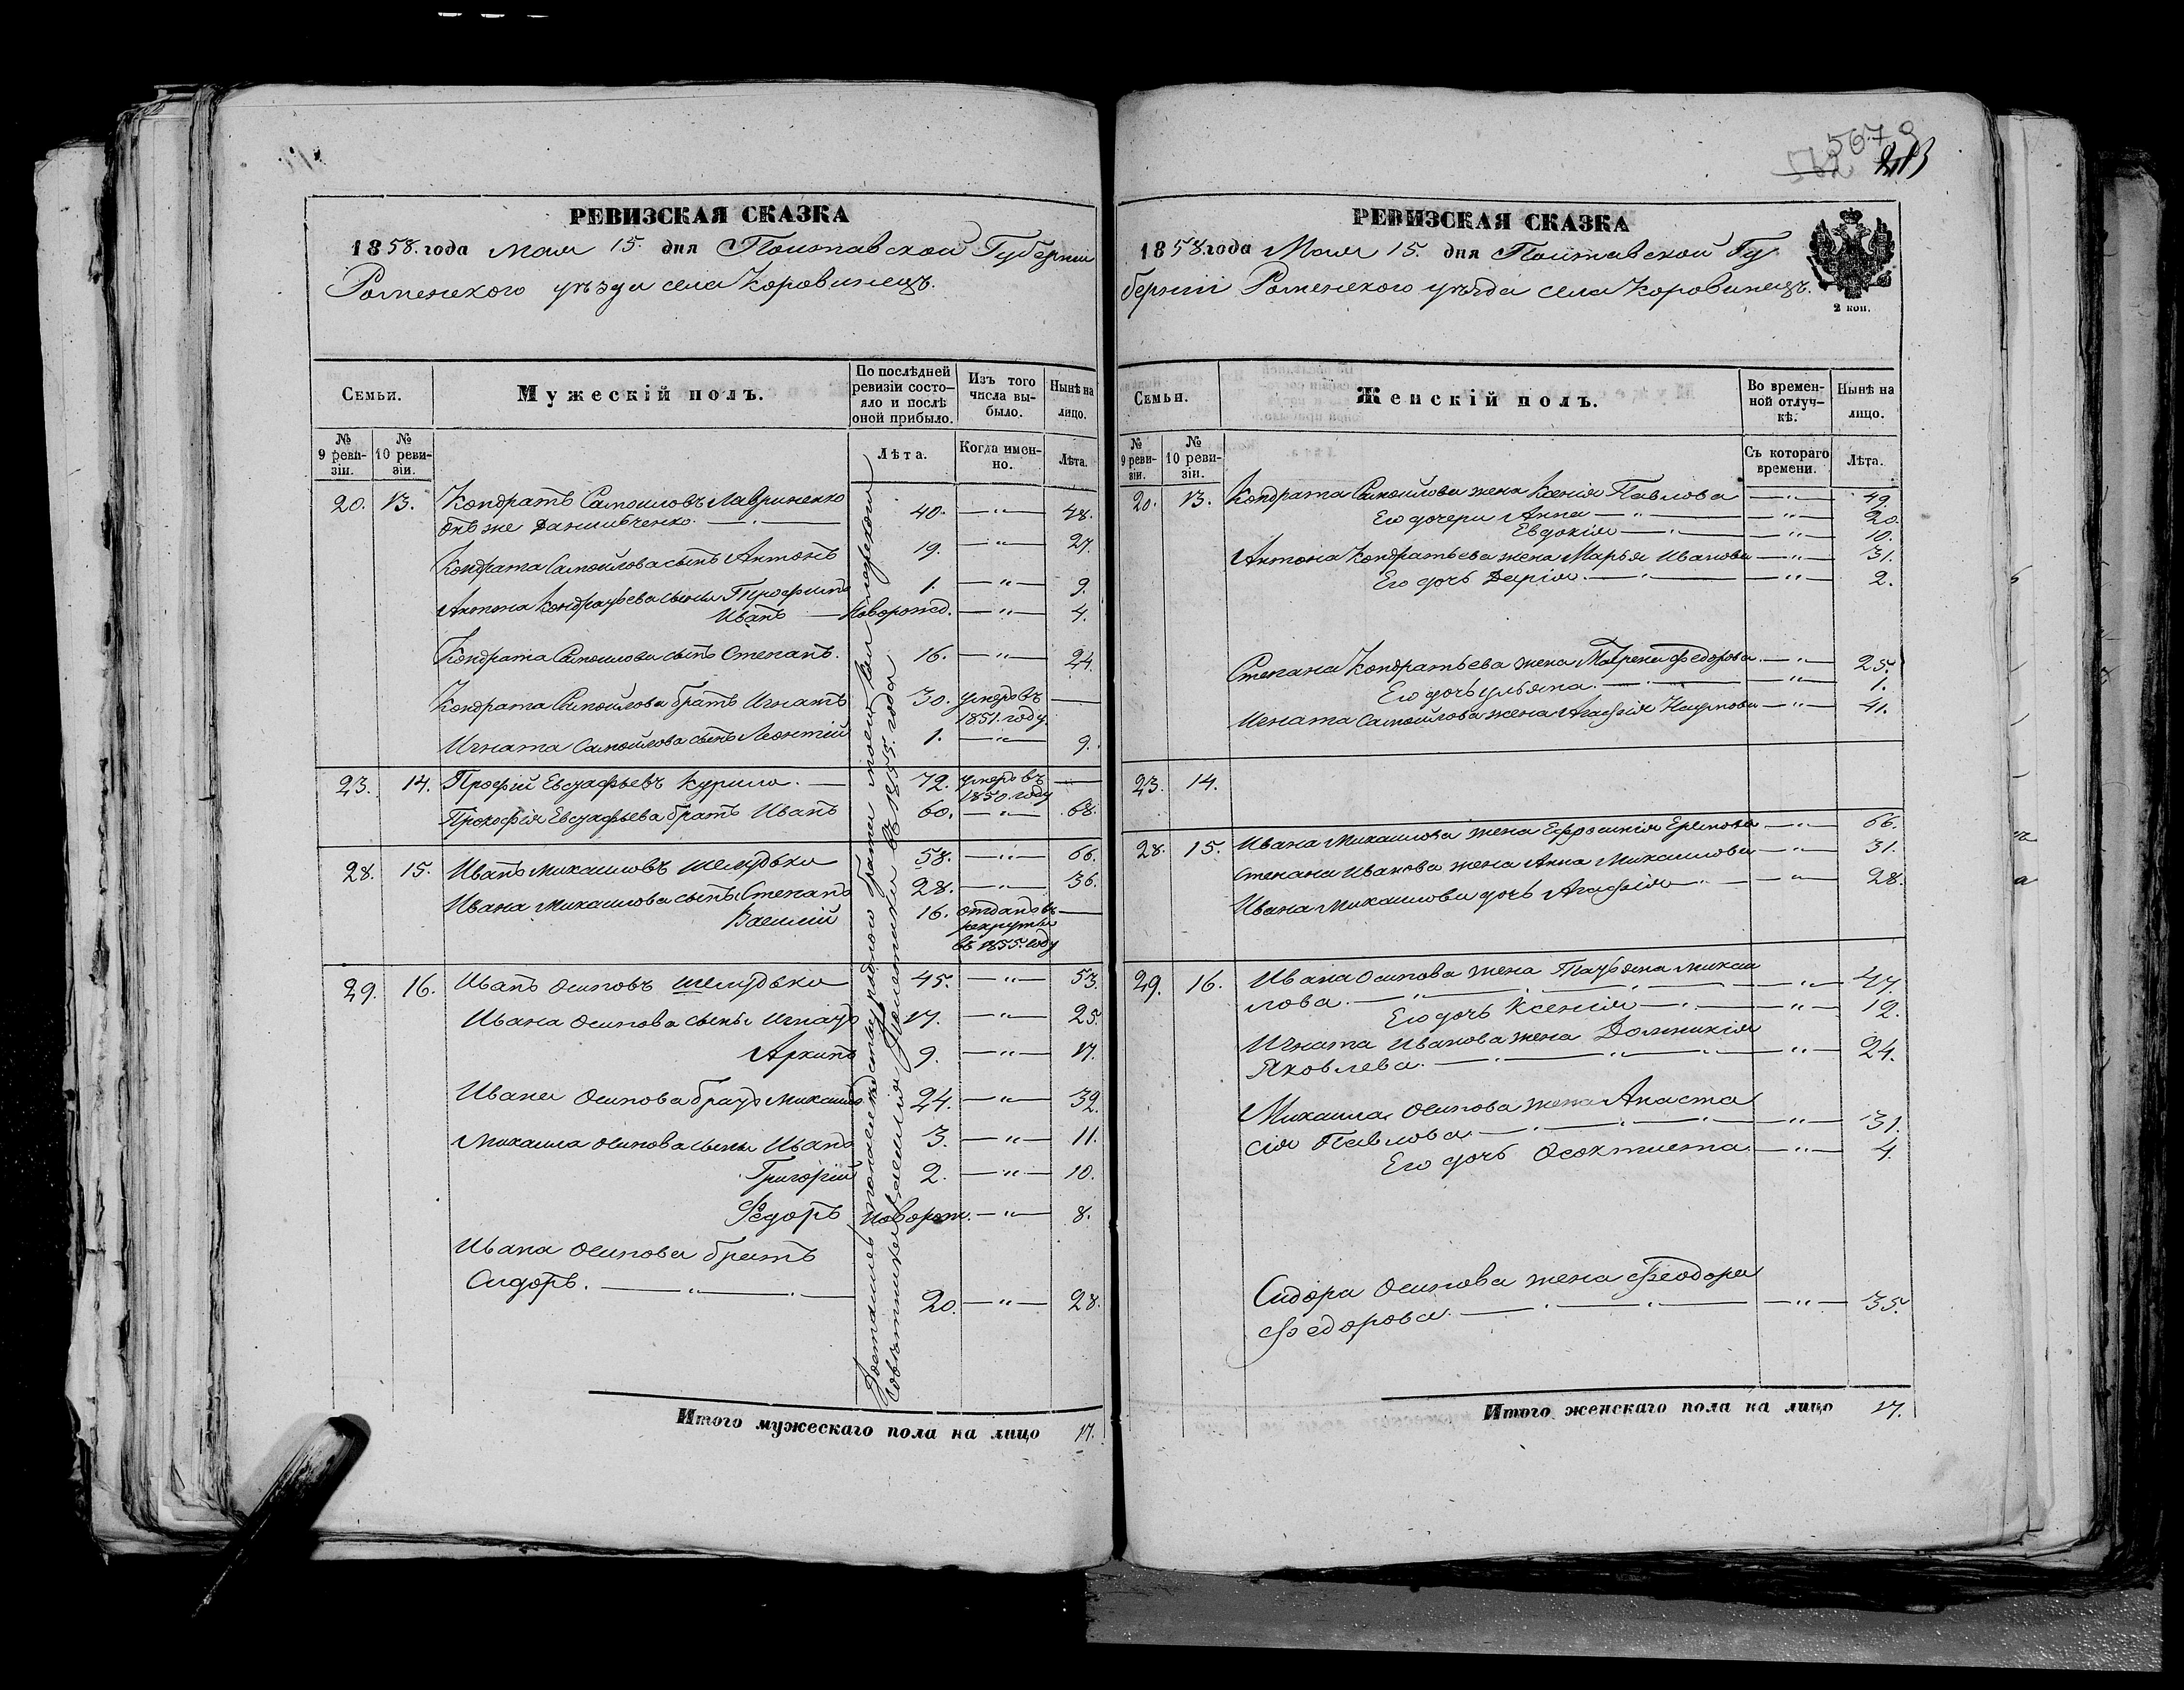 РЕВИЗСКАЯ СКАЗКА
1858. года Мая 15. дня Полтавской Губернии
Роменского уѣзда села Коровинецъ.
Семьи.
Мужескій полъ.
По послѣдней ревизіи состояло и послѣ оной прибыло.
Изъ того числа выбыло.
Нынѣ на лицо.
№ 9 ревизіи.
№ 10 ревизіи.
Лѣта.
Когда именно.
Лѣта.
20. 13. Кондратъ Самойловъ Лавриненко
онъ же Данильченко. 40. —"— 48.
Кондрата Самойлова сынъ Антонъ 19. —"— 27.
Антона Кондратьева сынъ Трофимъ 1. —"— 9.
Иванъ — Новорожд. —"— 4.
Кондрата Самойлова сынъ Степанъ. 16. —"— 24.
Кондрата Самойлова братъ Игнатъ 30. умеръ въ 1851. году —
Игната Самойлова сынъ Леонтій 1. —"— 9.
23. 14. Евстафьевъ Курило. — 72. умеръ въ 1850. году —
Прокофія Евстафьева братъ Иванъ 60. —"— 68.
28. 15. Иванъ Михайловъ Шелудько 58. —"— 66.
Ивана Михайлова сынъ Степанъ 28. —"— 36.
Василій 16. отданъ въ рекруты въ 1855. году —
29. 16. Иванъ Осиповъ Шелудько 45. —"— 53.
Ивана Осипова сыны Игнатъ 17. —"— 25.
Архипъ 9. —"— 17.
Ивана Осипова братъ Михаилъ 24. —"— 32.
Михаила Осипова сыны Иванъ 3. —"— 11.
Григорій 2. —"— 10.
Федоръ Новорож. —"— 8.
Ивана Осипова братъ
Сидоръ. 20. —"— 28.
родного брата моего
въ 1855. года
Итого мужескаго пола на лицо 17.
5679
562
213
РЕВИЗСКАЯ СКАЗКА
1858. года Мая 15. дня Полтавской Гу
берніи Роменского уѣзда села Коровинецъ.
2 коп.
Семьи.
Женскій полъ.
Во временной отлучкѣ.
Нынѣ на лицо.
№ 9 ревизіи.
№ 10 ревизіи.
Съ котораго времени.
Лѣта.
20. 13. Кондрата Самойлова жена Ксенія Павлова —"— 49.
Его дочери Анна —"— 20.
Евдокія —"— 10.
Антона Кондратьева жена Марья Иванова —"— 31.
Его дочь Дарія. —"— 2.
Степана Кондратьева жена Матрена Федорова —"— 25.
Его дочь Ульяна. —"— 1.
Игната Самойлова жена Агафія Наумова —"— 41.
23. 14.
28. 15. Ивана Михайлова жена Ефросинія —"— 66.
Степана Иванова жена Анна Михайлова —"— 31.
Ивана Михайлова дочь Агафія —"— 28.
29. 16. Ивана Осипова жена Татьяна Михай
лова. —"— 47.
Его дочь Ксенія —"— 12.
Игната Иванова жена Домникія
Яковлева. —"— 24.
Михаила Осипова жена Анаста
сія Павлова —"— 31.
Его дочь —"— 4.
Сидора Осипова жена Феодора
Федорова. —"— 35.
Итого женскаго пола на лицо 17.